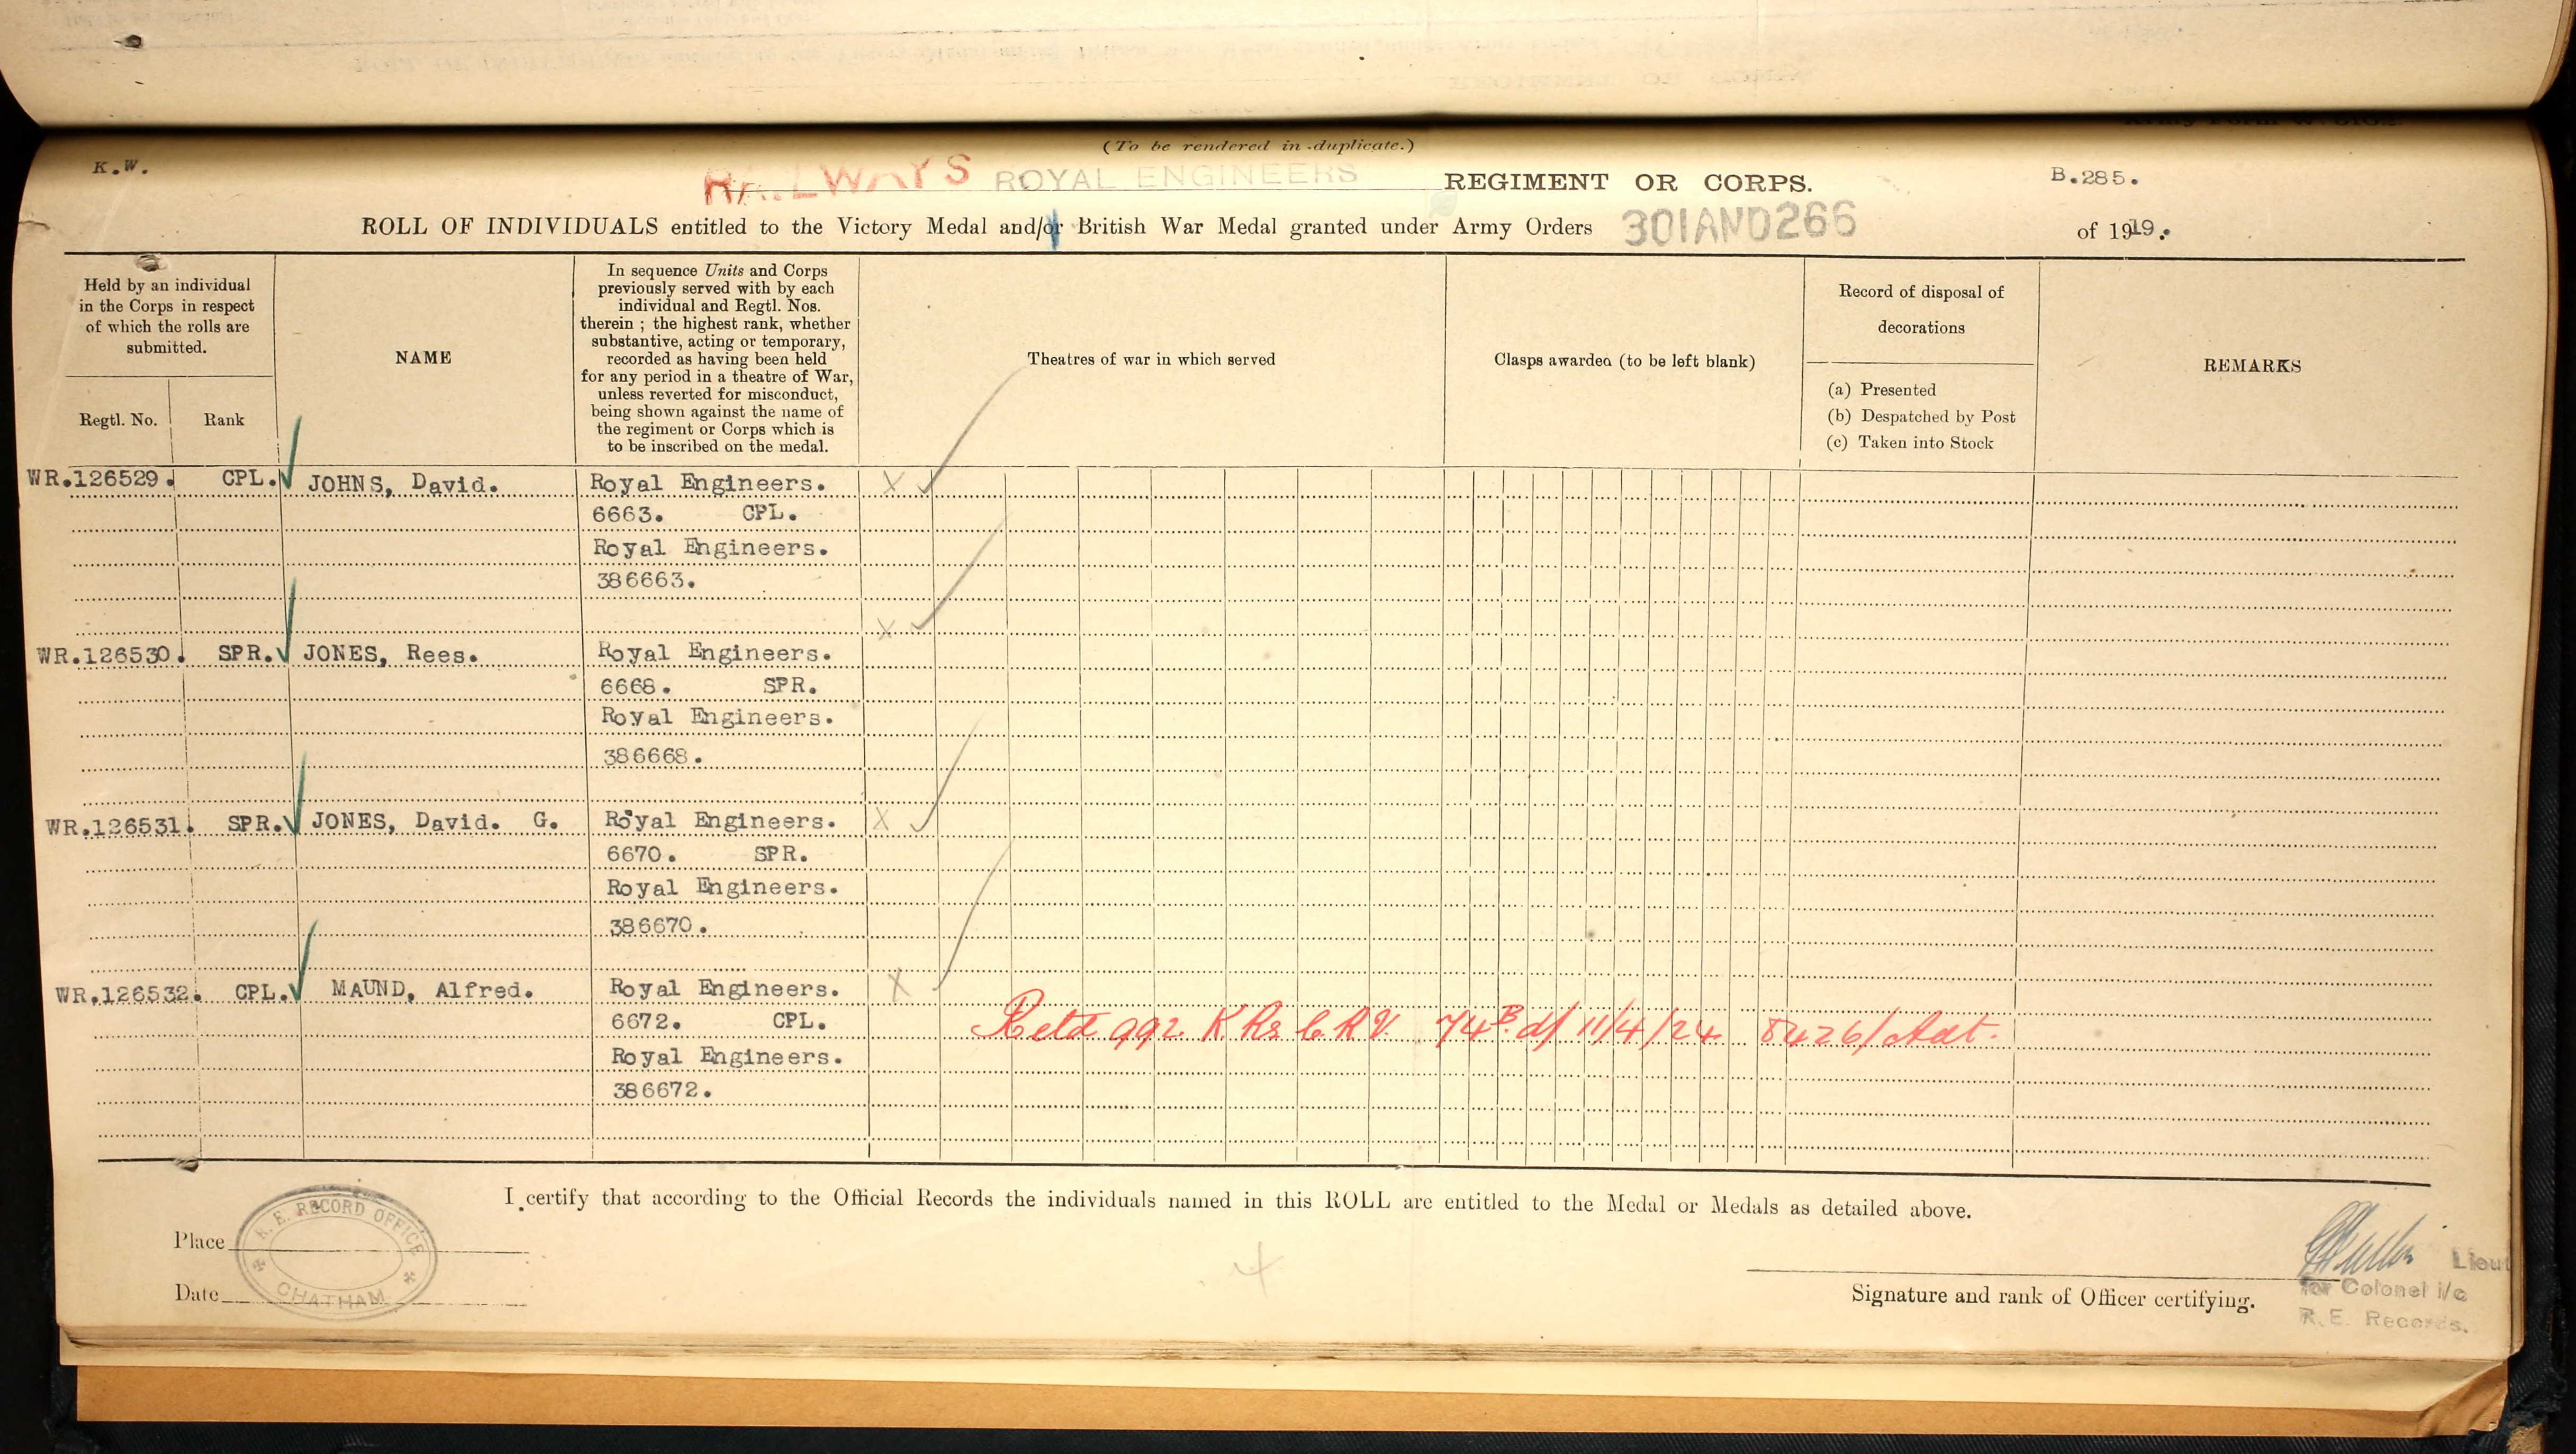 (To be rendered in duplicate.)
K.W.
RAILWAYS ROYAL ENGINEERS REGIMENT OR CORPS. B.285.
ROLL OF INDIVIDUALS entitled to the Victory Medal and/or British War Medal granted under Army Orders 301AND266 of 1919.
Held by an individual
in the Corps in respect
of which the rolls are
submitted.
Regtl. No. Rank
NAME
In sequence Units and Corps
previously served with by each
individual and Regtl. Nos.
therein ; the highest rank, whether
substantive, acting or temporary,
recorded as having been held
for any period in a theatre of War,
unless reverted for misconduct,
being shown against the name of
the regiment or Corps which is
to be inscribed on the medal.
Theatres of war in which served
Clasps awarded (to be left blank)
Record of disposal of
decorations
(a) Presented
(b) Despatched by Post
(c) Taken into Stock
REMARKS
WR.126529. CPL. JOHNS, David. Royal Engineers. X
6663. CPL.
Royal Engineers.
386663.
X
WR.126530. SPR. JONES, Rees. Royal Engineers.
6668. SPR.
Royal Engineers.
386668.
WR.126531. SPR. JONES, David. G. Royal Engineers. X
6670. SPR.
Royal Engineers.
386670.
WR.126532. CPL. MAUND, Alfred. Royal Engineers. X
6672. CPL. Retd 992 K.Rs C.R.V. 74B d/ 11/4/24 8426/Adt.
Royal Engineers.
386672.
I certify that according to the Official Records the individuals named in this ROLL are entitled to the Medal or Medals as detailed above.
Place
Date
R. E. RECORD OFFICE
CHATHAM
4
Lieut
for Colonel i/c
R.E. Records.
Signature and rank of Officer certifying.